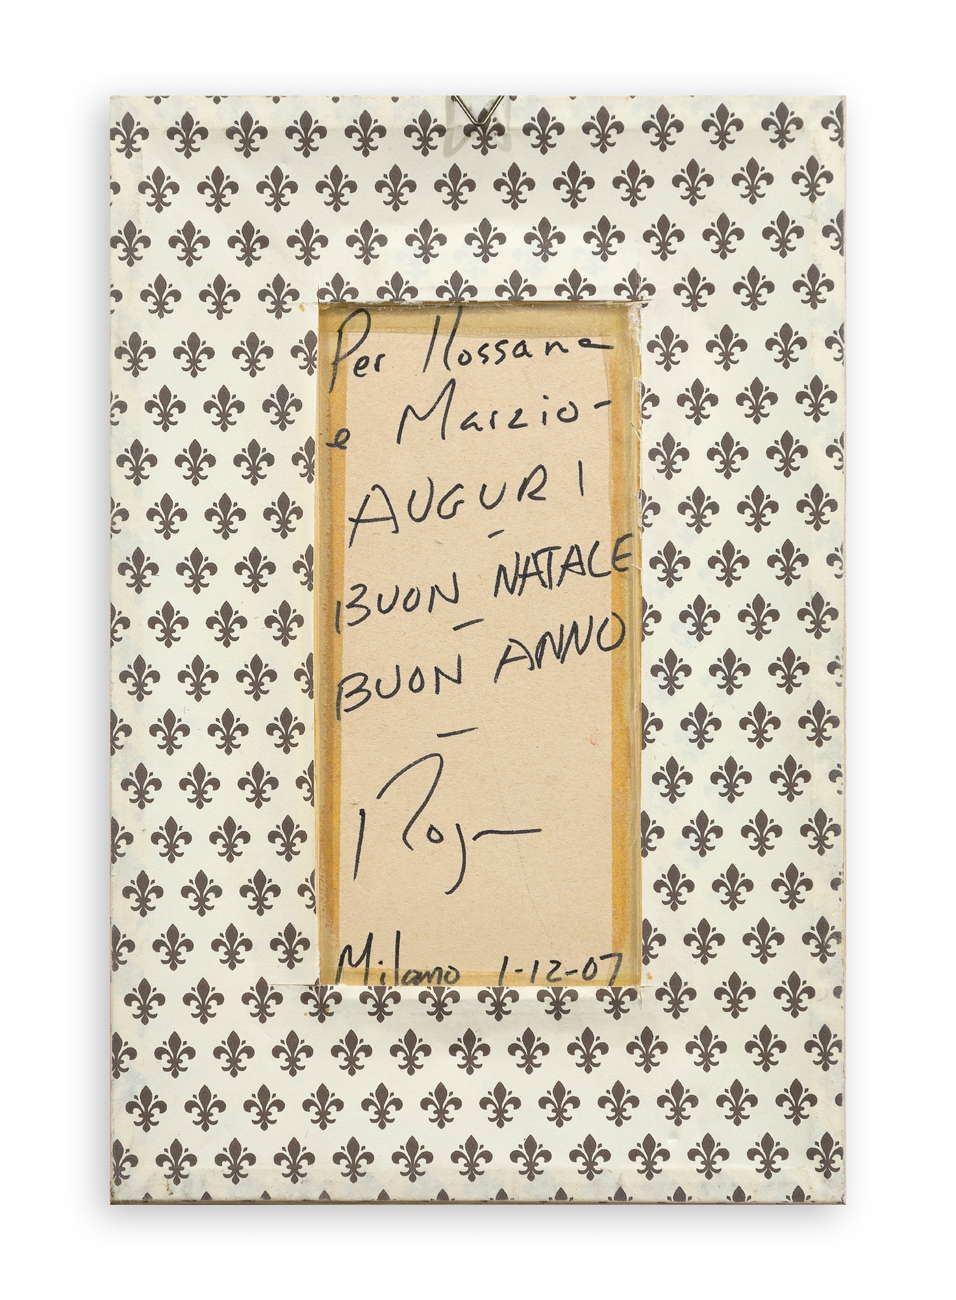 Per Rossana
e Marzio -
AUGURI
-
BUON NATALE
-
BUON ANNO
-
Milano 1-12-07